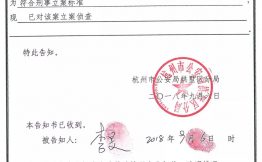 为 符合刑事立案标准
现 已对该案立案侦查
特此告知。
杭州市公安局拱墅区分局
二〇一八年九月六日
本告知书已收到。
被告知人:
2018 年 9 月 6 日 时